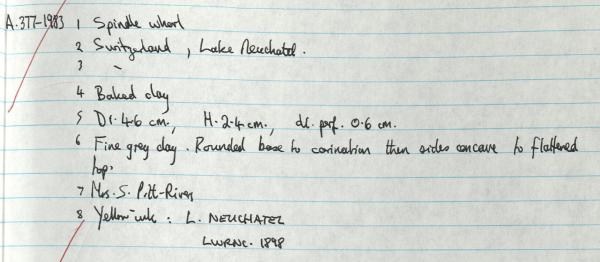 A.377-1983 1 Spindle whorl
2 Switzerland, Lake Neuchatel.
3 -
4 Baked clay
5 Di. 4.6 cm., H. 2.4 cm., di. perf. 0.6 cm.
6 Fine grey clay. Rounded base to carination then sides concave to flattened
top.
7 Mrs. S. Pitt-Rivers
8 Yellow ink: L. NEUCHATEL
LWRNC. 1898